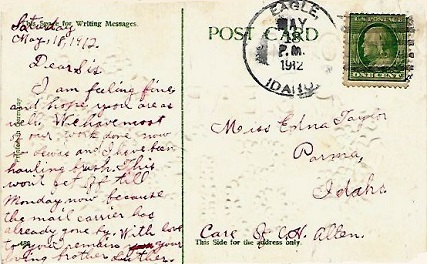 This Space for Writing Messages.
Saturday
May, 18, 1912.
Dear Sis
I am feeling fine
and hope you are as
well. We have most
our work done now
and I have been
hauling brush. This
won't get off till
Monday now because
the mail carrier has
already gone by. With love
to you remains your
loving brother Luther.
Printed in Germany
POST CARD
EAGLE,
MAY
P.M.
1912
IDAHO
ONE CENT
Miss Edna Taylor
Parma,
Idaho
Care of C.H. Allen.
This Side for the address only.